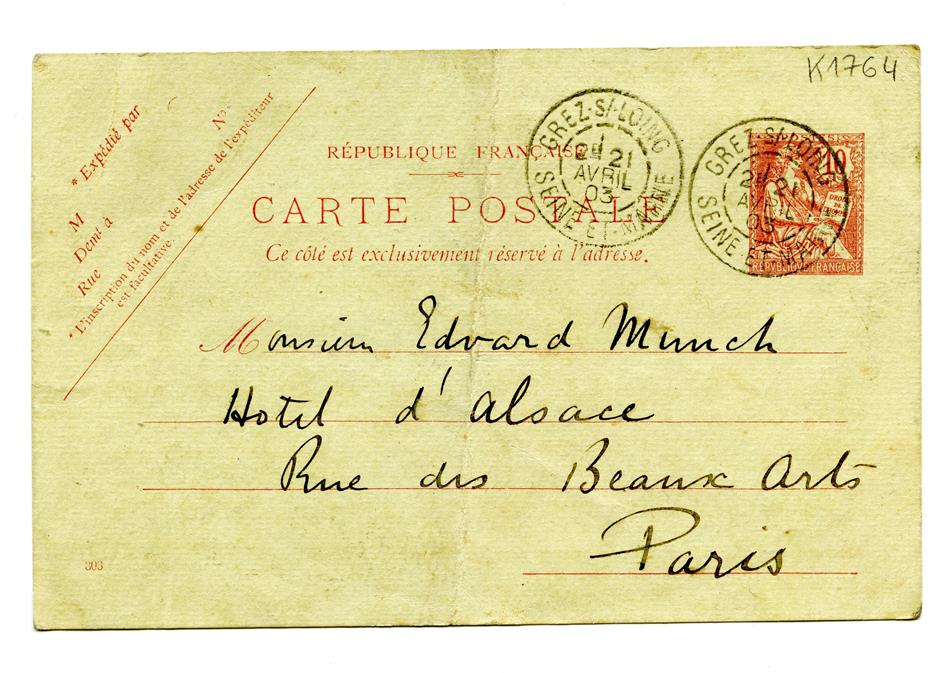 K1764
* Expédié par
M
Demt à
Rue
N°
* L'inscription du nom et de l'adresse de l'expéditeur
est facultative.
RÉPUBLIQUE FRANÇAISE
CARTE POSTALE
Ce côté est exclusivement réservé à l'adresse.
GREZ-S/-LOING
21
AVRIL
03
SEINE-ET-MARNE
GREZ-S/-LOING
AVRIL
03
SEINE-ET-MARNE
10
DROITS
DE
L'HOMME
RÉPUBLIQUE FRANÇAISE
Monsieur Edvard Munch
Hotel d'Alsace
Rue des Beaux Arts
Paris
303